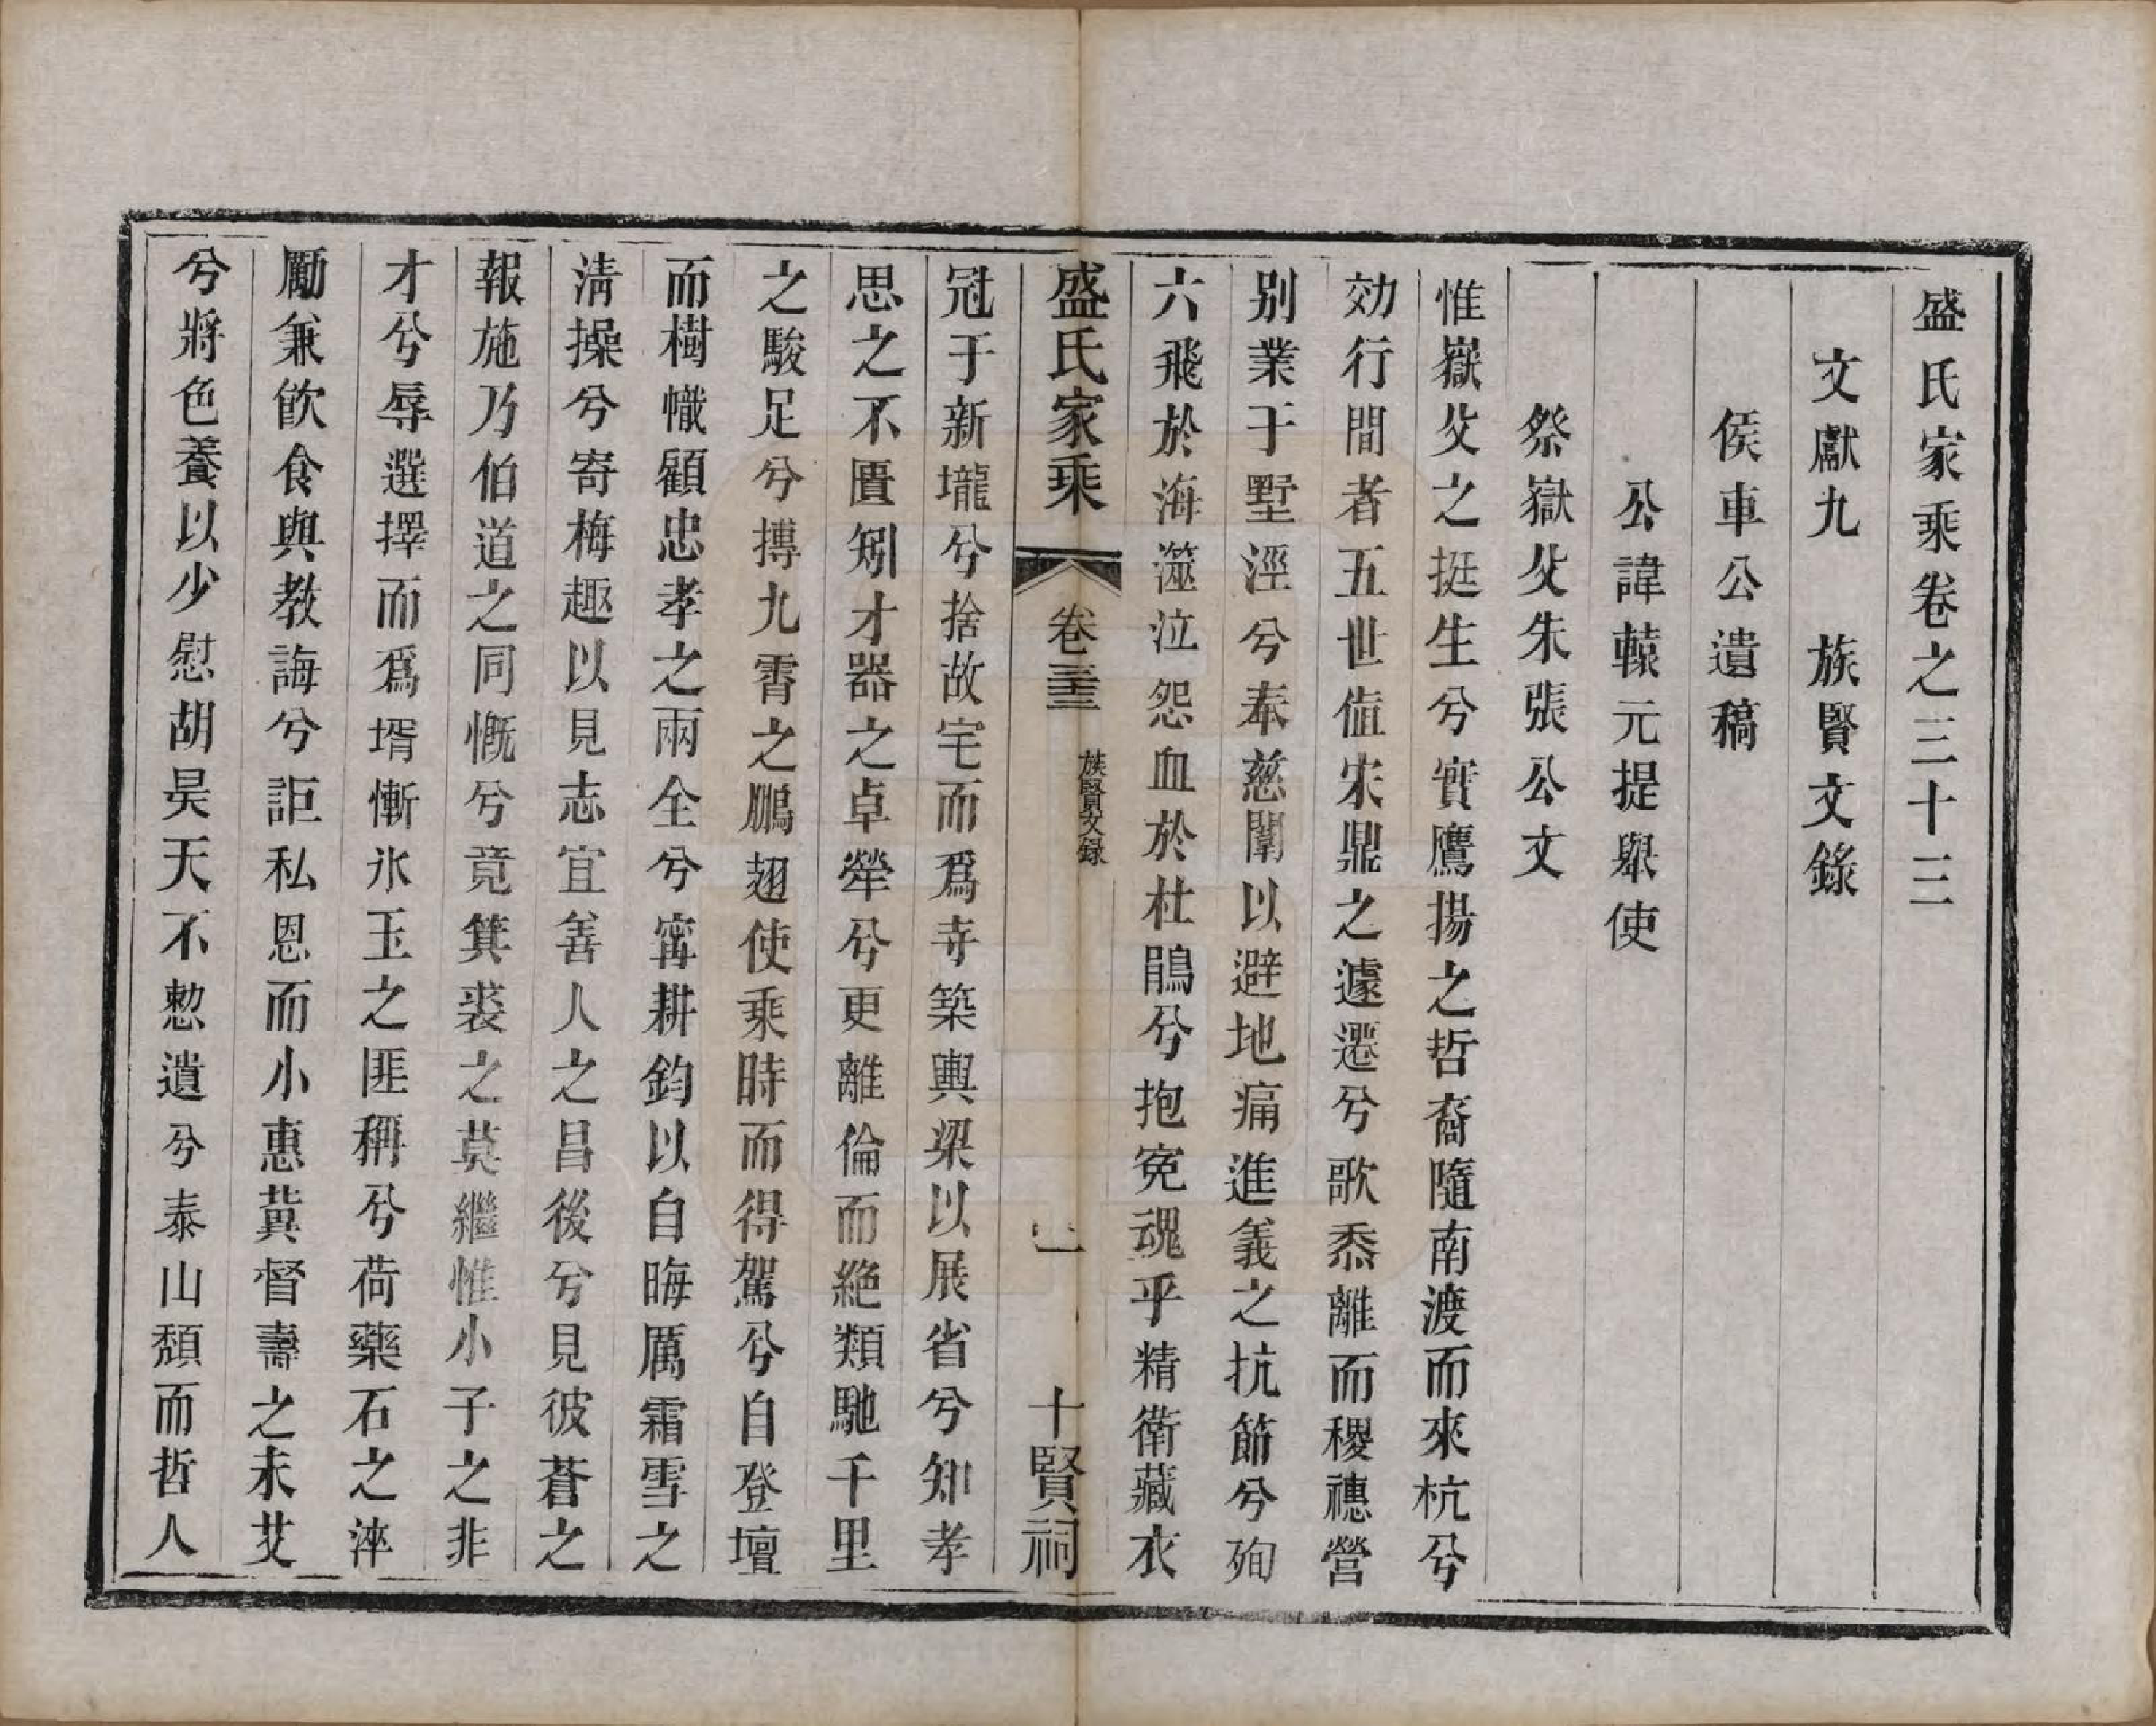 盛氏家乘卷之三十三
文獻九　族賢文錄
侯車公遺稿
公諱轅元提舉使
祭嶽父朱張公文
惟嶽父之挺生兮實鷹揚之哲裔隨南渡而來杭兮
効行間者五世值宋鼎之遽遷兮歌黍離而稷穗營
别業于墅涇兮奉慈闈以避地痛進義之抗節兮殉
六飛於海澨泣怨血於杜鵑兮抱寃魂乎精衛藏衣
冠于新壠兮捨故宅而爲寺築輿梁以展省兮知孝
思之不匱矧才器之卓犖兮更離倫而絶類馳千里
之駿足兮摶九霄之鵬翅使乘時而得駕兮自登壇
而樹幟顧忠孝之兩全兮甯耕釣以自晦厲霜雪之
淸操兮寄梅趣以見志宜善人之昌後兮見彼蒼之
報施乃伯道之同慨兮竟箕裘之莫繼惟小子之非
才兮辱選擇而爲壻慚氷玉之匪稱兮荷藥石之淬
勵兼飮食與教誨兮詎私恩而小惠冀督壽之未艾
兮將色養以少慰胡昊天不憖遺兮泰山頹而哲人
盛氏家乘
卷三十三
族賢文録
一
十賢祠